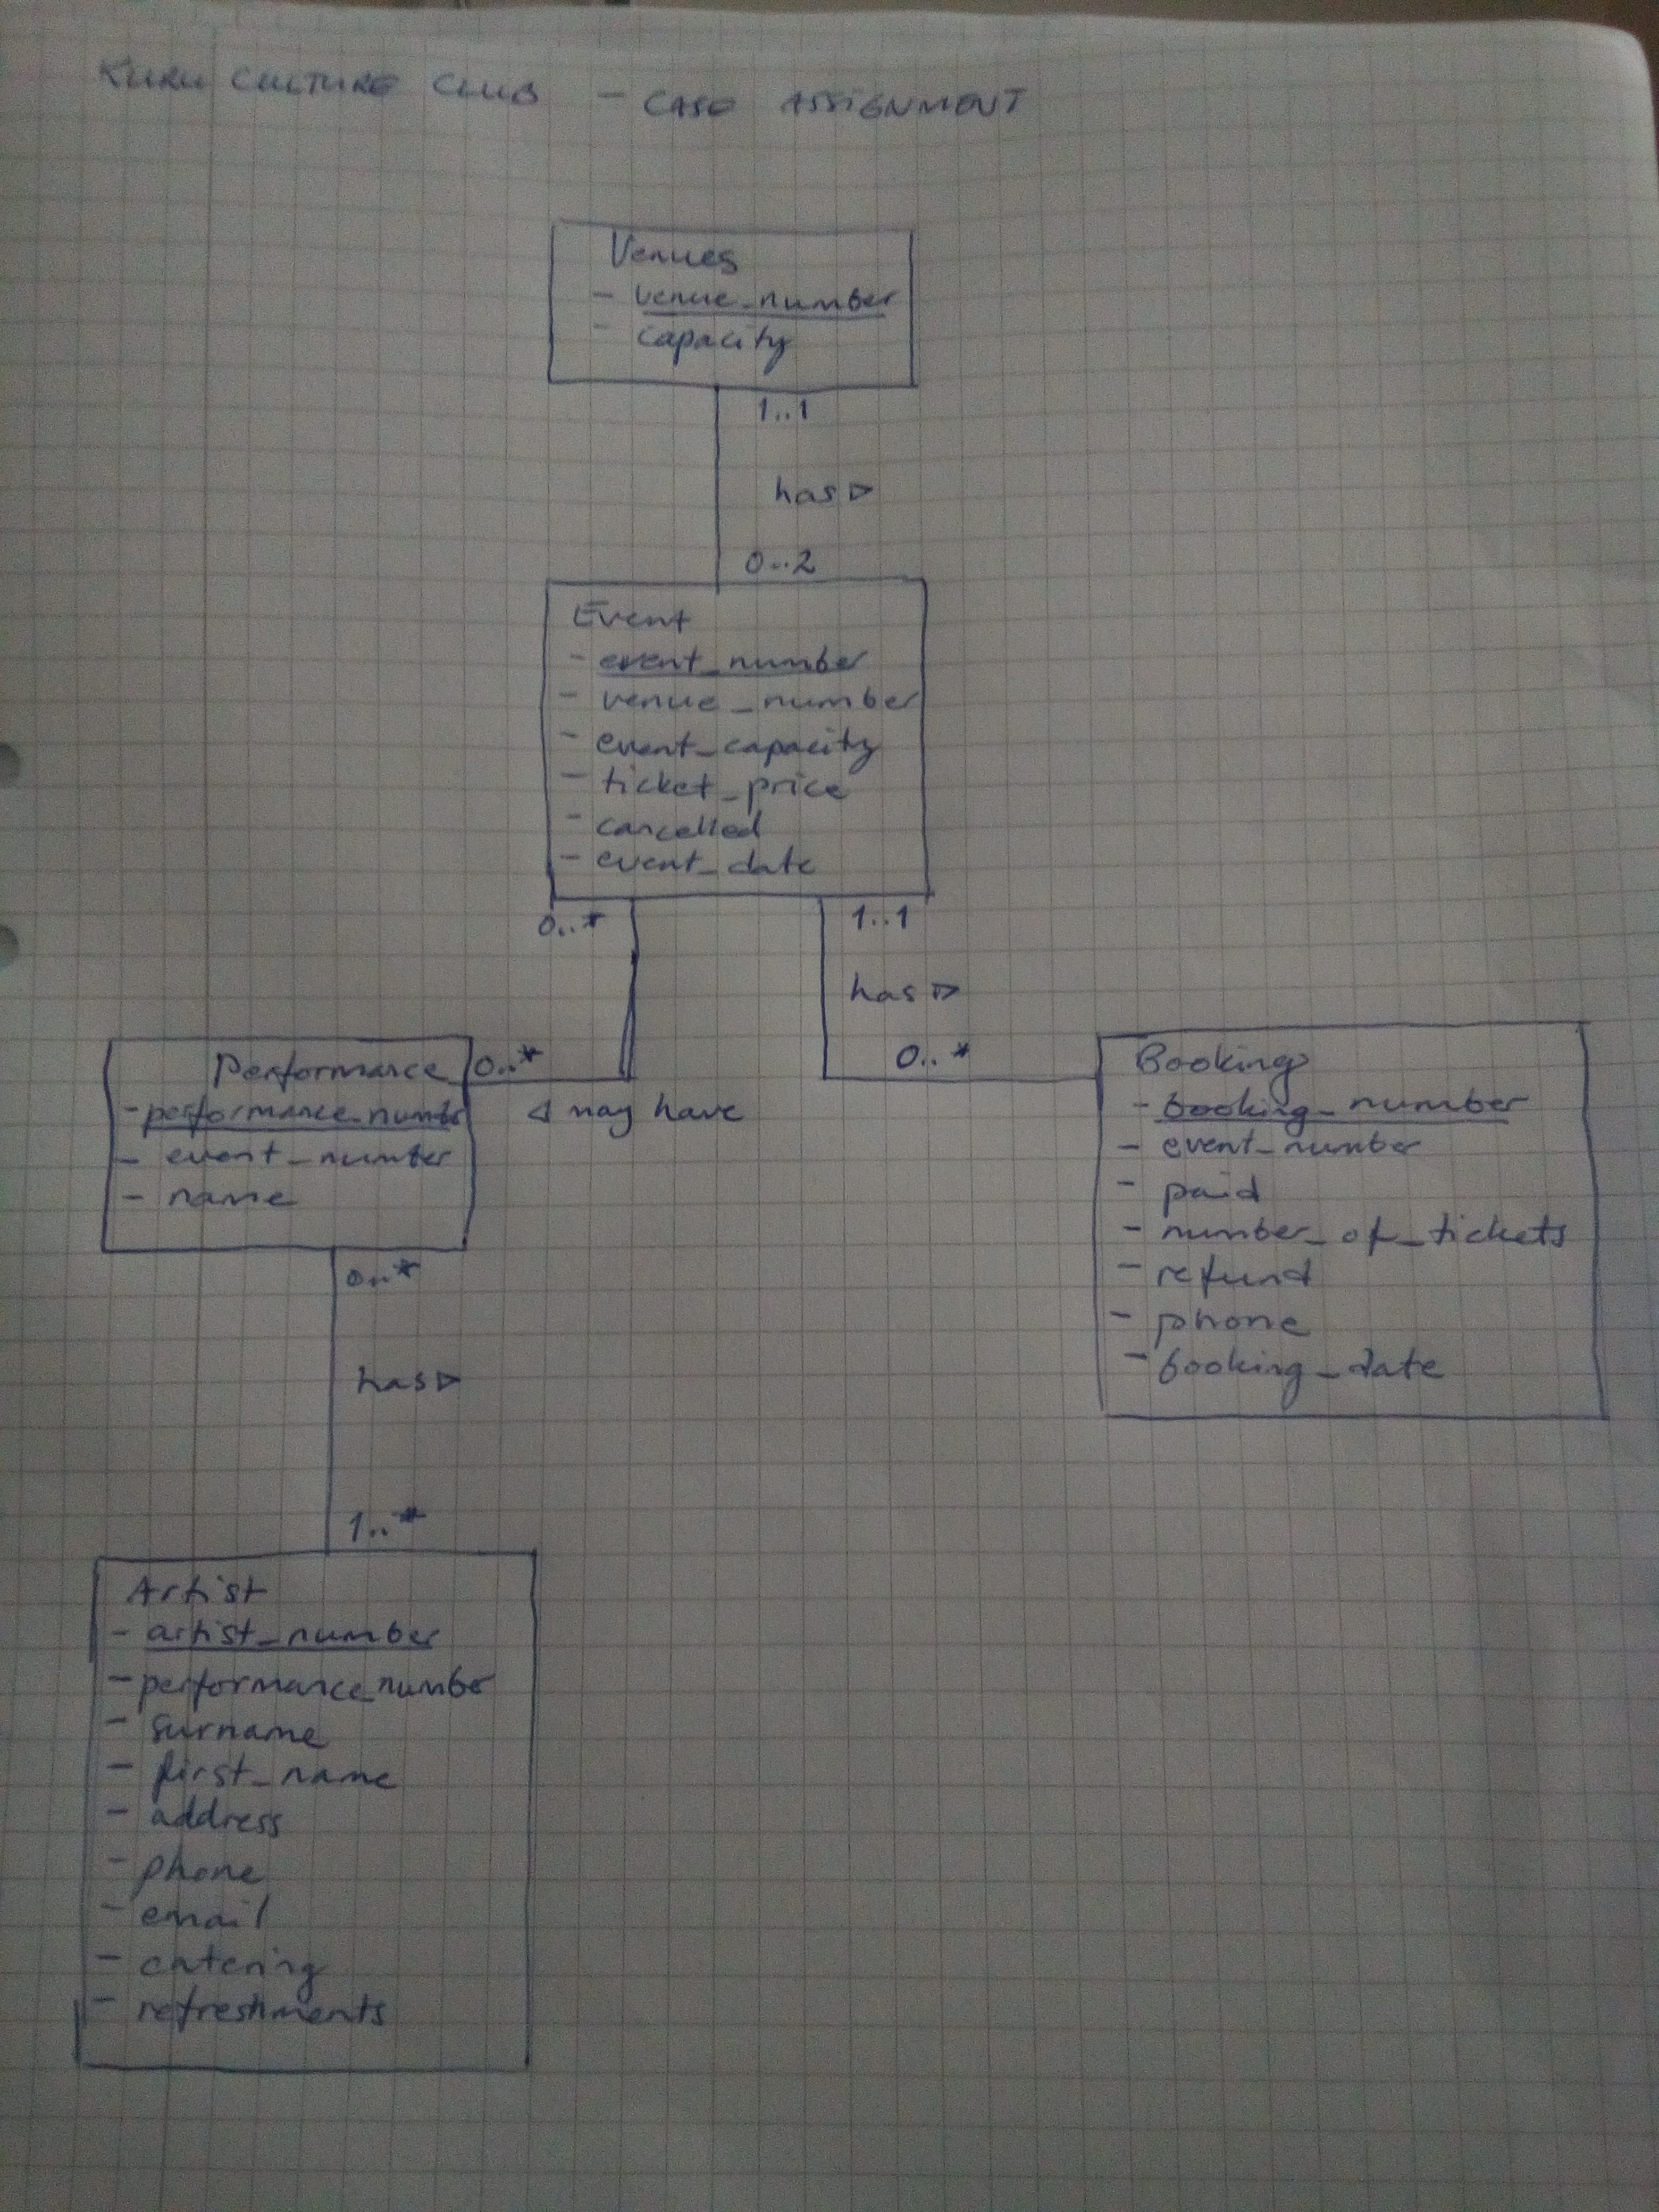 KURU CULTURE CLUB - CASE ASSIGNMENT
Venues
- venue_number
- capacity
1..1
has ▷
0..2
Event
- event_number
- venue_number
- event_capacity
- ticket_price
- cancelled
- event_date
0..*
1..1
has ▷
0..*
0..*
◁ may have
Performance
- performance_number
- event_number
- name
Booking
- booking_number
- event_number
- paid
- number_of_tickets
- refund
- phone
- booking_date
0..*
has ▷
1..*
Artist
- artist_number
- performance_number
- surname
- first_name
- address
- phone
- email
- catering
- refreshments